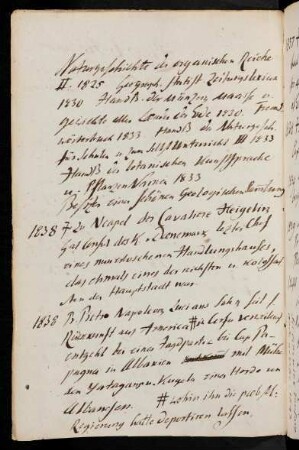 Naturgeschichte der organischen Reiche
II. 1825 Geograph. statist Zeitungslexicon
1830 Handb. der Münzen, Maasse u.
Gewichte aller Länder der Erde 1830. Fremd
wörterbuch 1833 Handb. der Naturgesch.
für Schulen u zum Selbstunterricht III 1833
Handb der botanischen Kunstsprache
u Pflanzen Namen 1833
Besitzer einer schönen Geologischen Sammlung
1838 † zu Neapel der Cavaliere Heigelin
Gal Consul des K v Dänemark letzter Chef
eines wunderschönen Handlungshauses,
das ehmals eines der reichsten u
in der Hauptstadt war.
1838 P. Pietro Napoleon, Lucians Sohn, seit s.
Rükkunft aus America # in Corfu
entgeht bei einer Jagdpartie bei Cap
pagna in Albanien mit Mühe
den Yatagans u. Kugeln einer Horde von
Albanesen. # wohin ihn die päbstl.
Regierung hatte deportiren lassen.